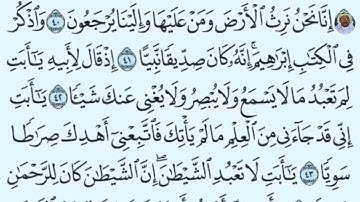 إِنَّا نَحْنُ نَرِثُ ٱلْأَرْضَ وَمَنْ عَلَيْهَا وَإِلَيْنَا يُرْجَعُونَ ٤٠ وَٱذْكُرْ
فِى ٱلْكِتَٰبِ إِبْرَٰهِيمَ ۚ إِنَّهُۥ كَانَ صِدِّيقًا نَّبِيًّا ٤١ إِذْ قَالَ لِأَبِيهِ يَٰٓأَبَتِ
لِمَ تَعْبُدُ مَا لَا يَسْمَعُ وَلَا يُبْصِرُ وَلَا يُغْنِى عَنكَ شَيْـًٔا ٤٢ يَٰٓأَبَتِ
إِنِّى قَدْ جَآءَنِى مِنَ ٱلْعِلْمِ مَا لَمْ يَأْتِكَ فَٱتَّبِعْنِىٓ أَهْدِكَ صِرَٰطًا
سَوِيًّا ٤٣ يَٰٓأَبَتِ لَا تَعْبُدِ ٱلشَّيْطَٰنَ ۖ إِنَّ ٱلشَّيْطَٰنَ كَانَ لِلرَّحْمَٰنِ